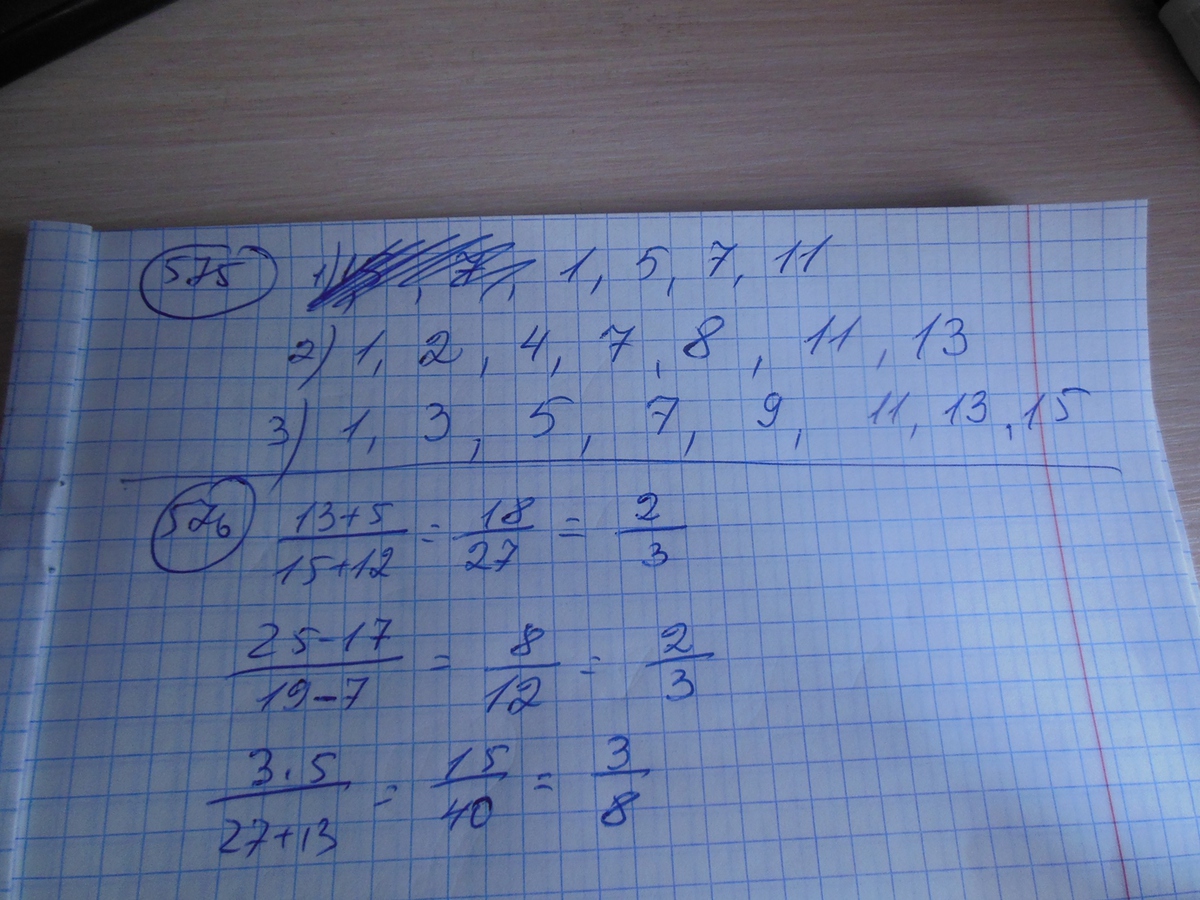 575 1) 7, 1, 5, 7, 11
2) 1, 2, 4, 7, 8, 11, 13
3) 1, 3, 5, 7, 9, 11, 13, 15
576 13+5/15+12 = 18/27 = 2/3
25-17/19-7 = 8/12 = 2/3
3·5/27+13 = 15/40 = 3/8